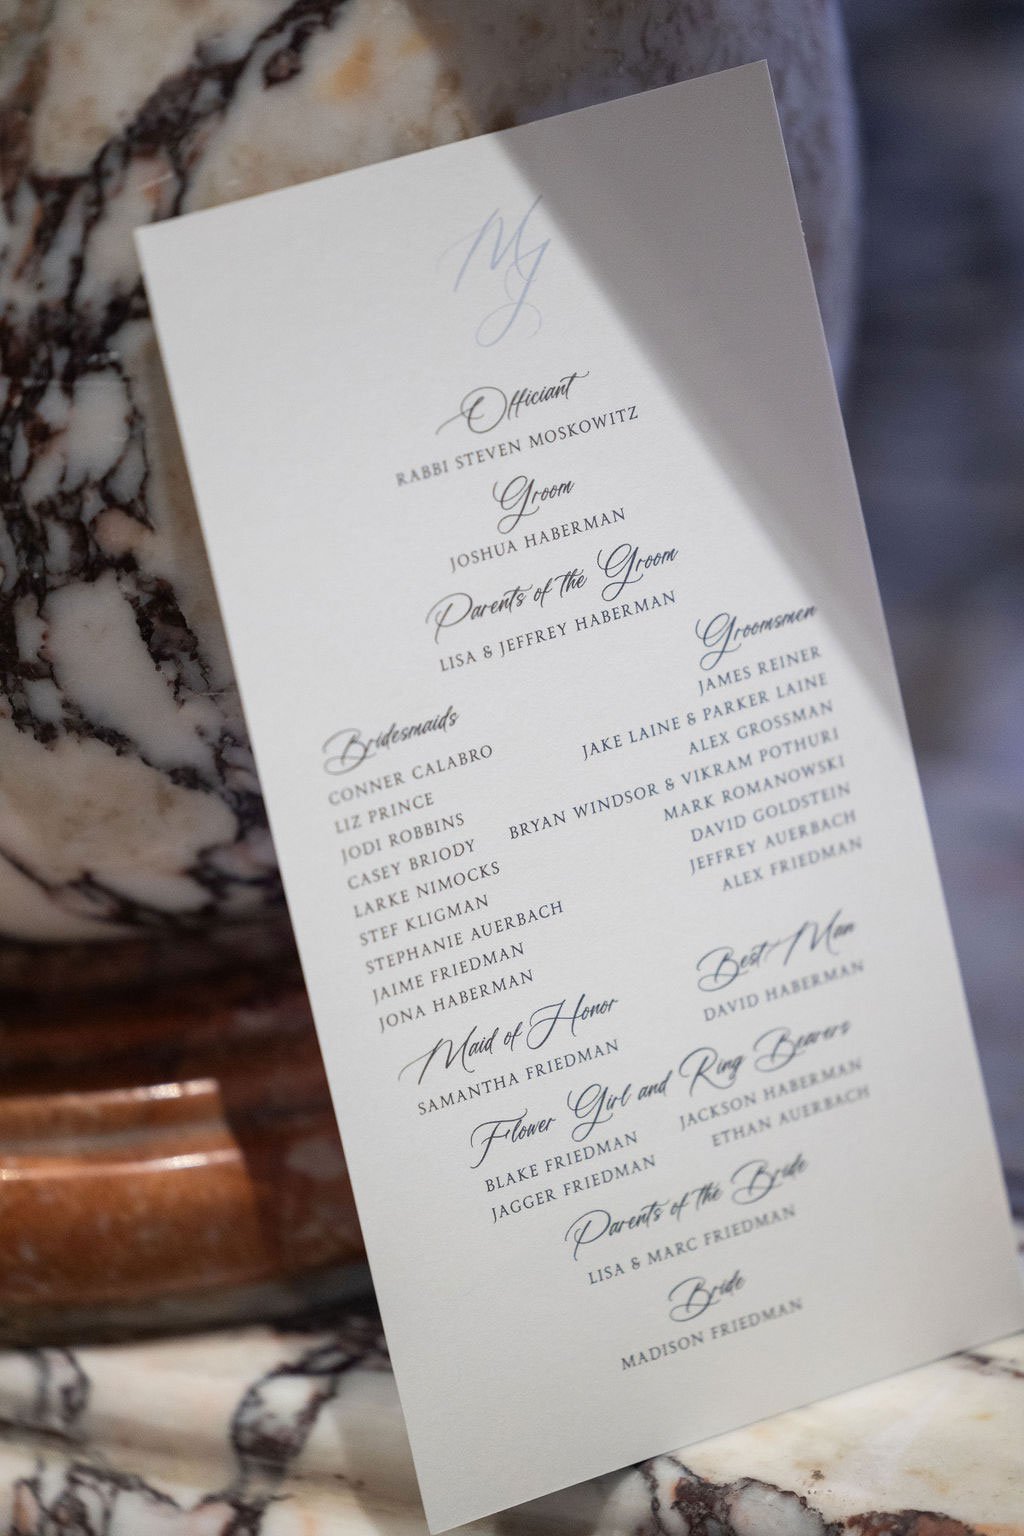 MJ
Officiant
RABBI STEVEN MOSKOWITZ
Groom
JOSHUA HABERMAN
Parents of the Groom
LISA & JEFFREY HABERMAN
Bridesmaids
CONNER CALABRO
LIZ PRINCE
JODI ROBBINS
CASEY BRIODY
LARKE NIMOCKS
STEF KLIGMAN
STEPHANIE AUERBACH
JAIME FRIEDMAN
JONA HABERMAN
Groomsmen
JAMES REINER
JAKE LAINE & PARKER LAINE
ALEX GROSSMAN
BRYAN WINDSOR & VIKRAM POTHURI
MARK ROMANOWSKI
DAVID GOLDSTEIN
JEFFREY AUERBACH
ALEX FRIEDMAN
Maid of Honor
SAMANTHA FRIEDMAN
Best Man
DAVID HABERMAN
Flower Girl and Ring Bearers
BLAKE FRIEDMAN
JAGGER FRIEDMAN
JACKSON HABERMAN
ETHAN AUERBACH
Parents of the Bride
LISA & MARC FRIEDMAN
Bride
MADISON FRIEDMAN